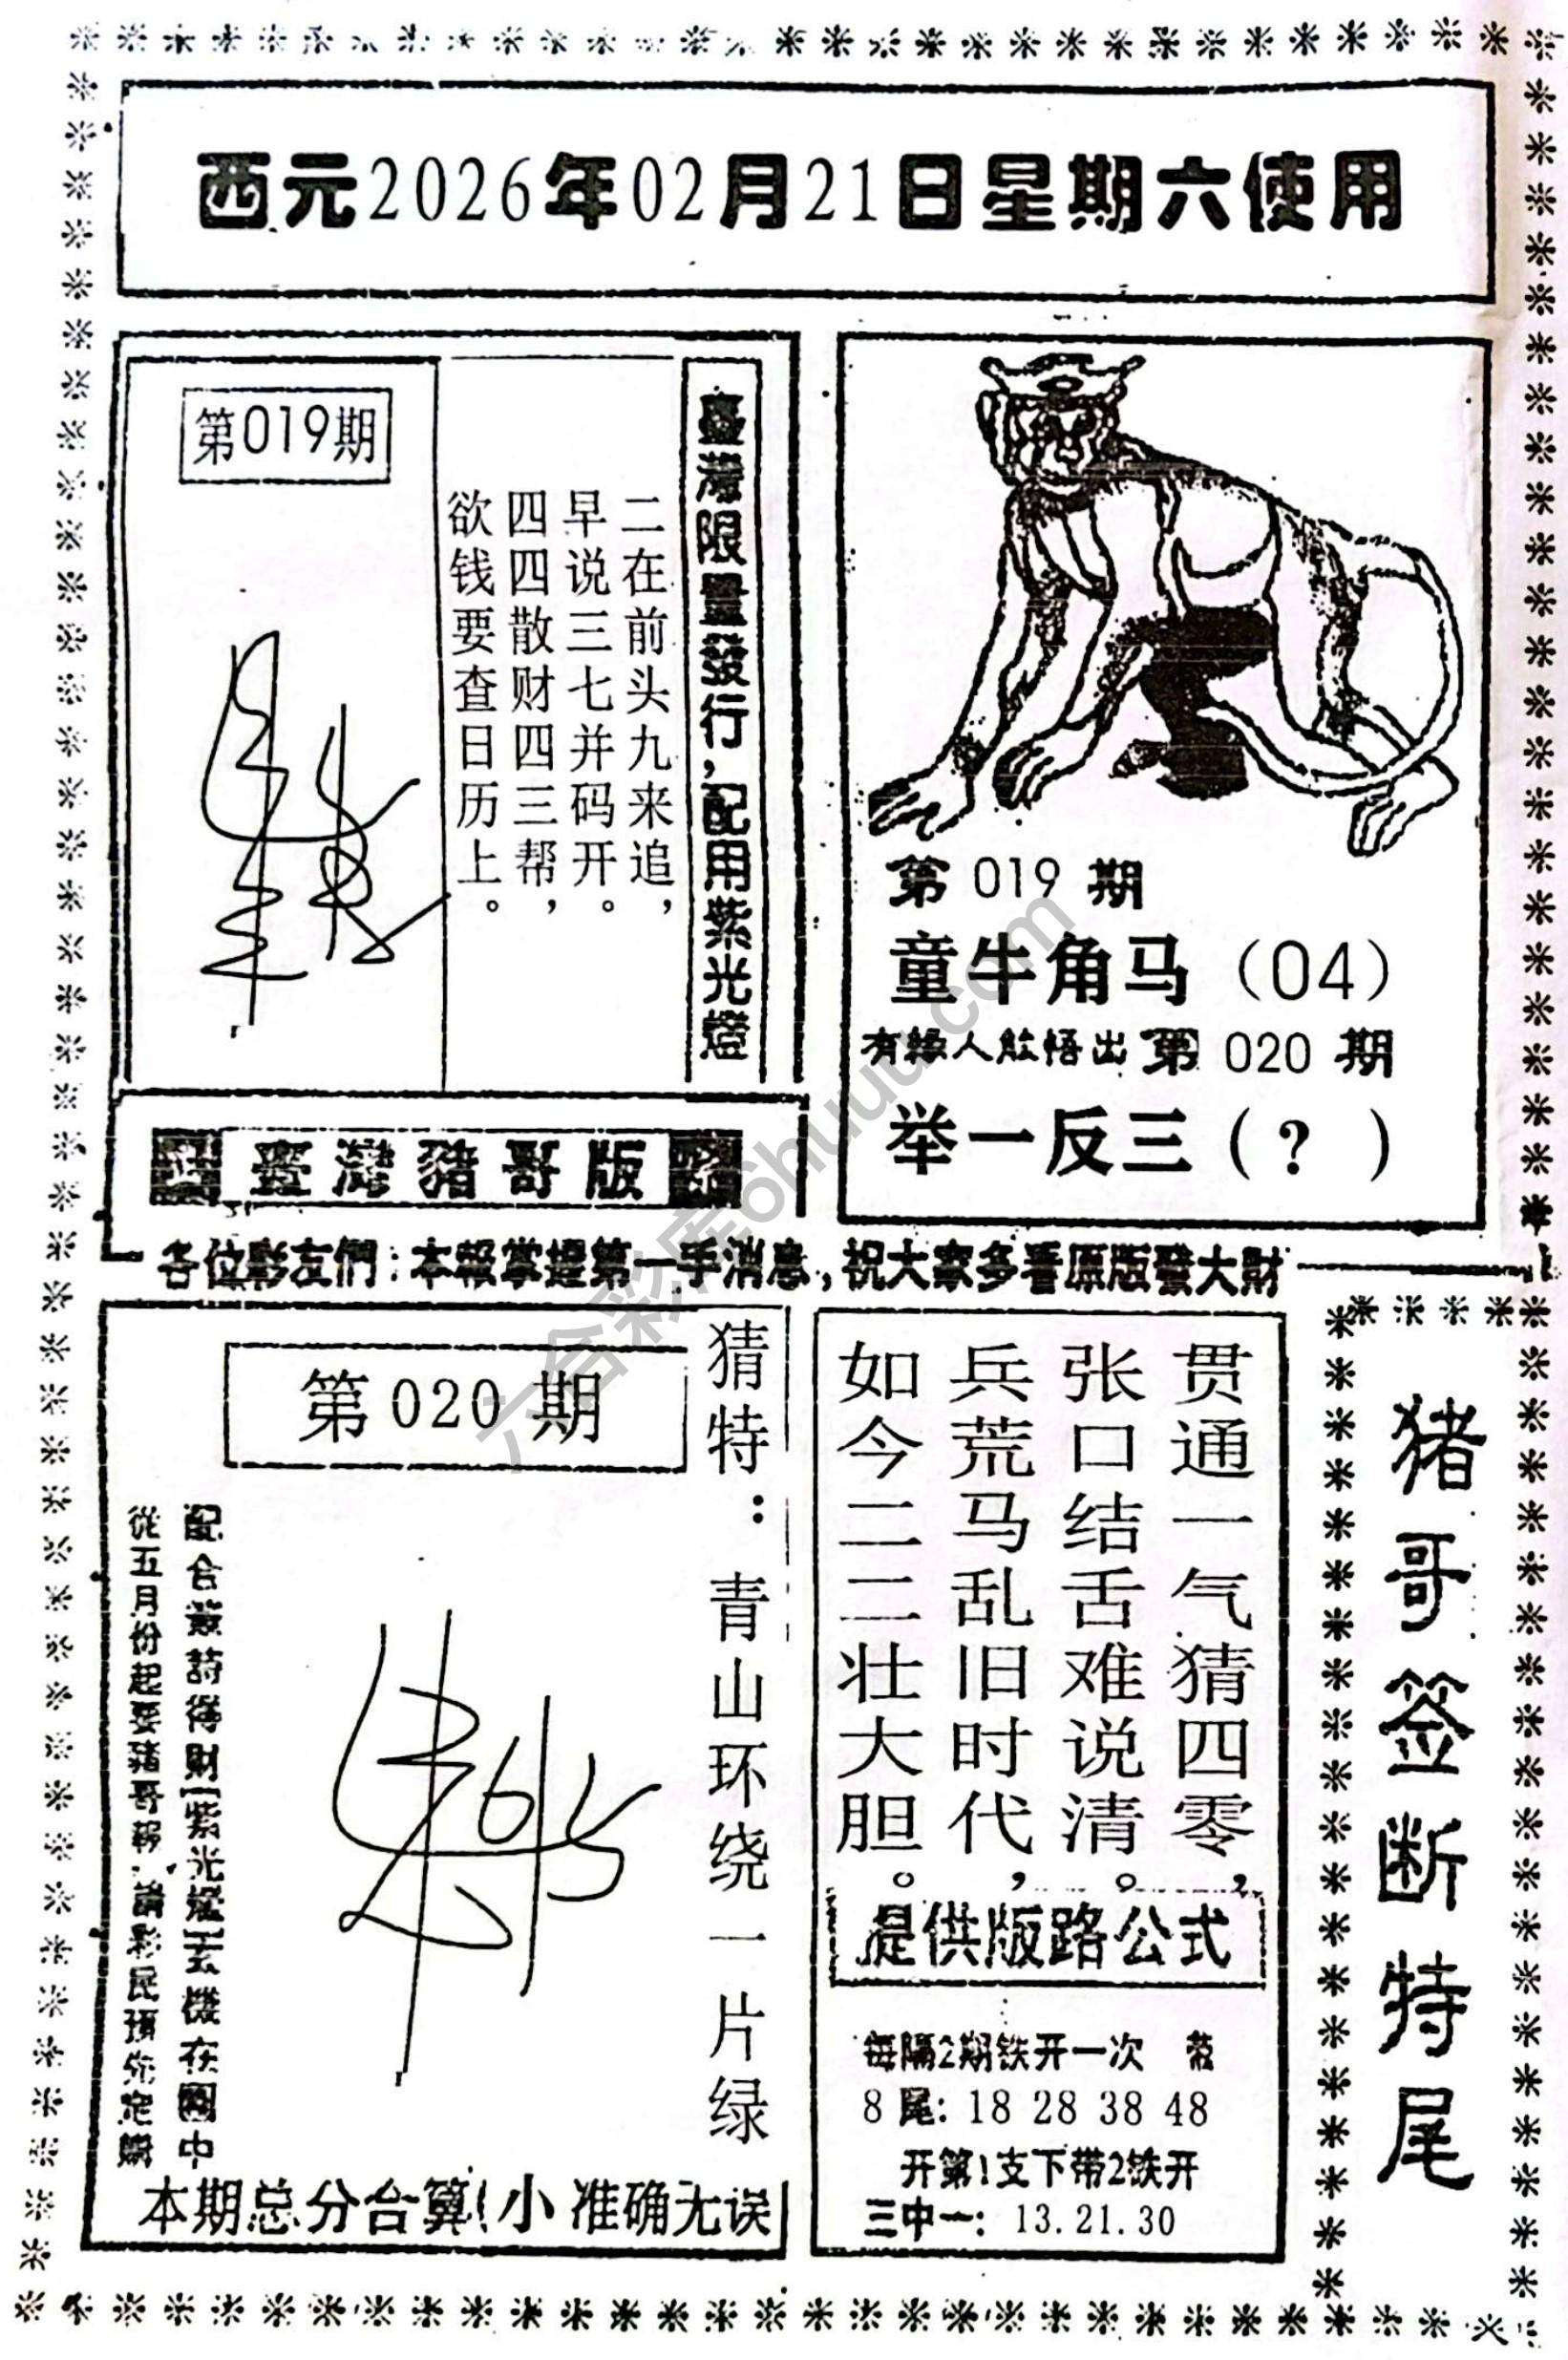 西元2026年02月21日星期六使用
第019期
臺灣限量發行，配用紫光燈
二在前头九来追，
早说三七并码开。
四四散财四三帮，
欲钱要查日历上。
第 019 期
童牛角马（04）
有緣人能悟出 第 020 期
举一反三（？）
臺灣豬哥版路
各位彩友們：本報掌握第一手消息，祝大家多看原版發大財
第 020 期
猜特：青山环绕一片绿
配合叢詩得財[紫光燈]玄機在圖中
從五月份起要豬哥報，請彩民預先定購
本期总分合算(小 准确无误)
贯通一气猜四零，
张口结舌难说清。
兵荒马乱旧时代，
如今二二壮大胆。
提供版路公式
每隔2期铁开一次 带
8 尾: 18 28 38 48
开第1支下带2铁开
三中一: 13.21.30
猪哥签断特尾
六合彩库6huuu.com